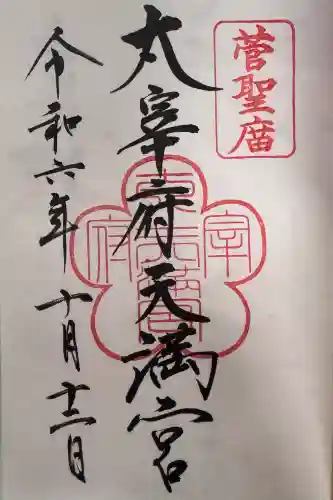 菅聖庿
太宰府天満宮
令和六年十月十二日